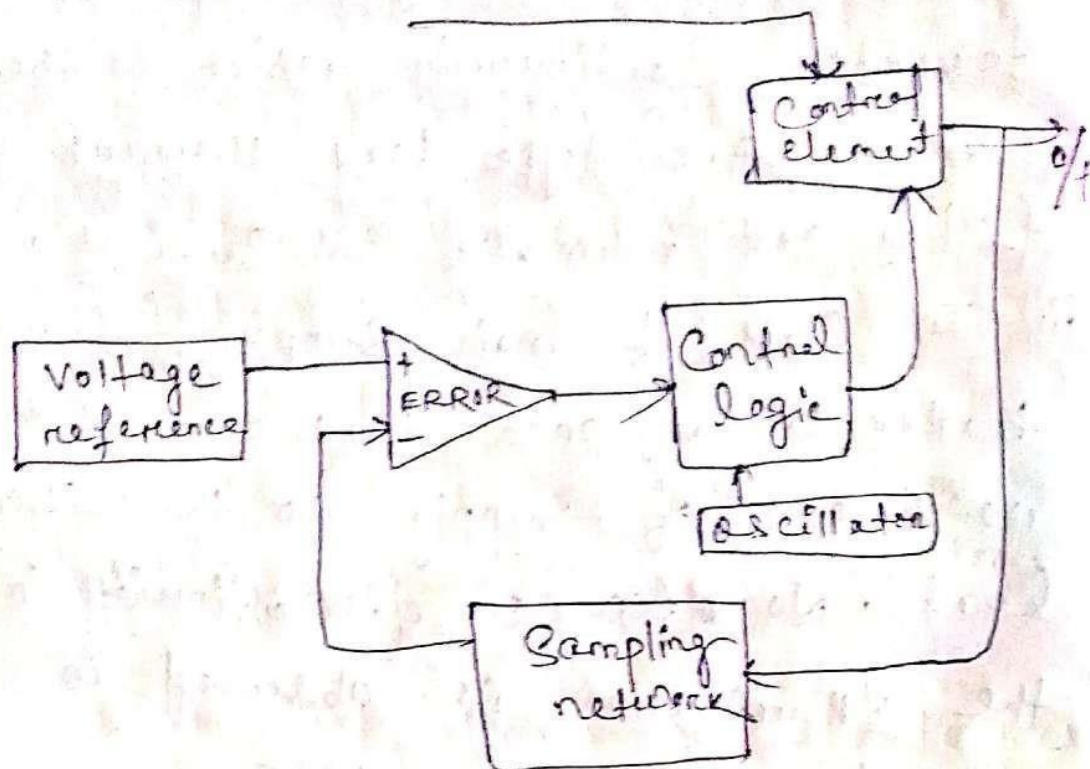 Control
element
o/p
Voltage
reference
+
ERROR
-
Control
logic
oscillator
Sampling
network